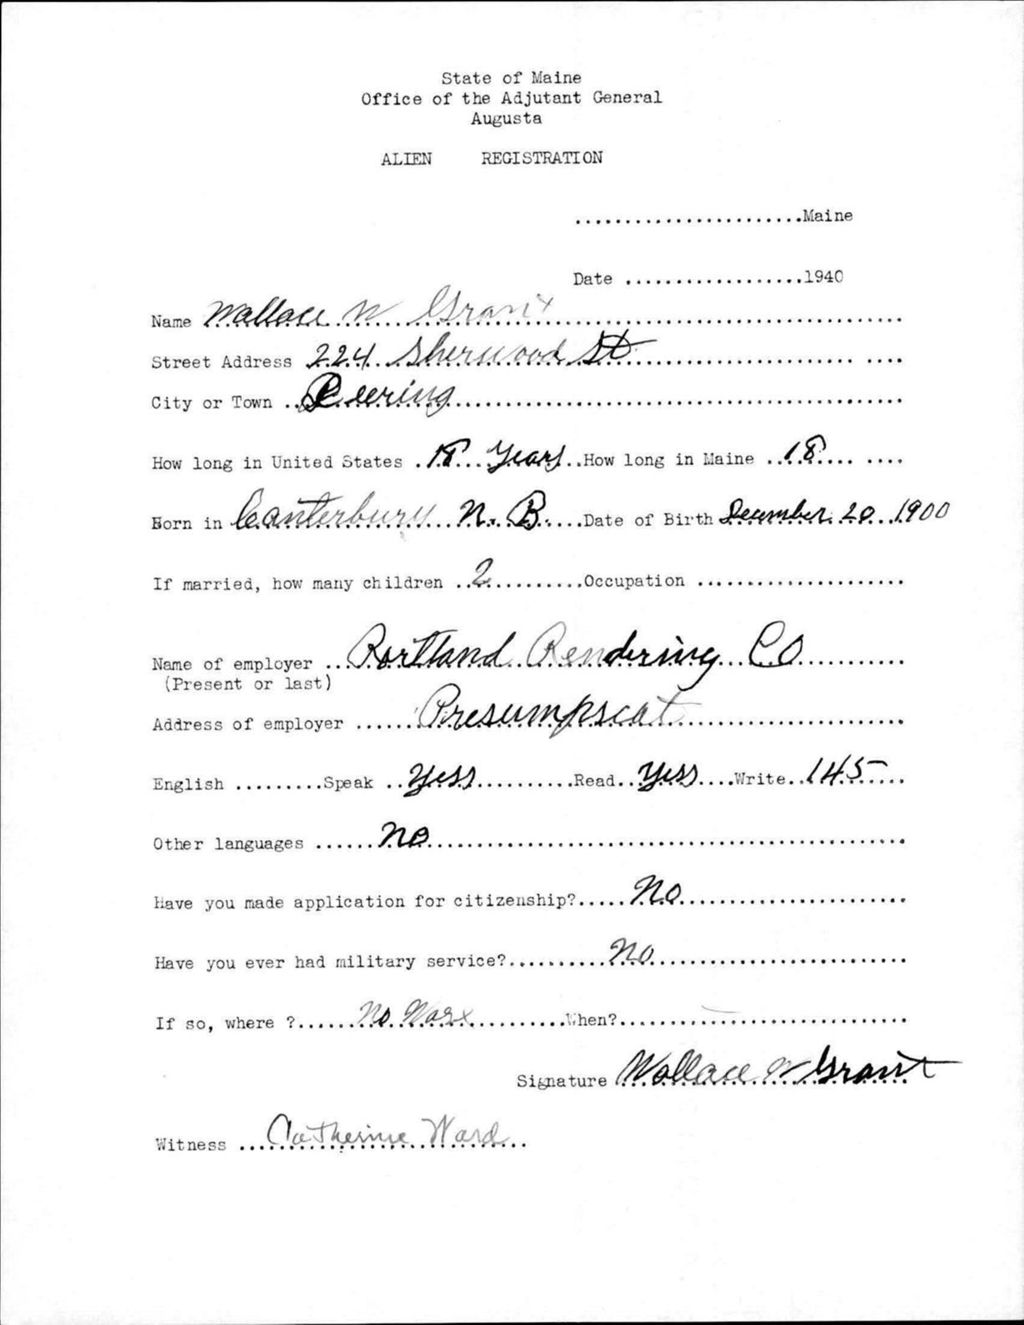 State of Maine
Office of the Adjutant General
Augusta
ALIEN REGISTRATION
.......................Maine
Date ..................1940
Name Wallace W Grant
Street Address 224 Sherwood St
City or Town Deering
How long in United States 18 Years How long in Maine 18
Born in Canterbury N. B. Date of Birth December 20 1900
If married, how many children 2 Occupation .....................
Name of employer Portland Rendering Co
(Present or last)
Address of employer Presumpscat
English .........Speak Yess Read Yess Write
Other languages no
Have you made application for citizenship? No
Have you ever had military service? No
If so, where ? No When?
Signature Wallace W Grant
Witness Catherine Ward